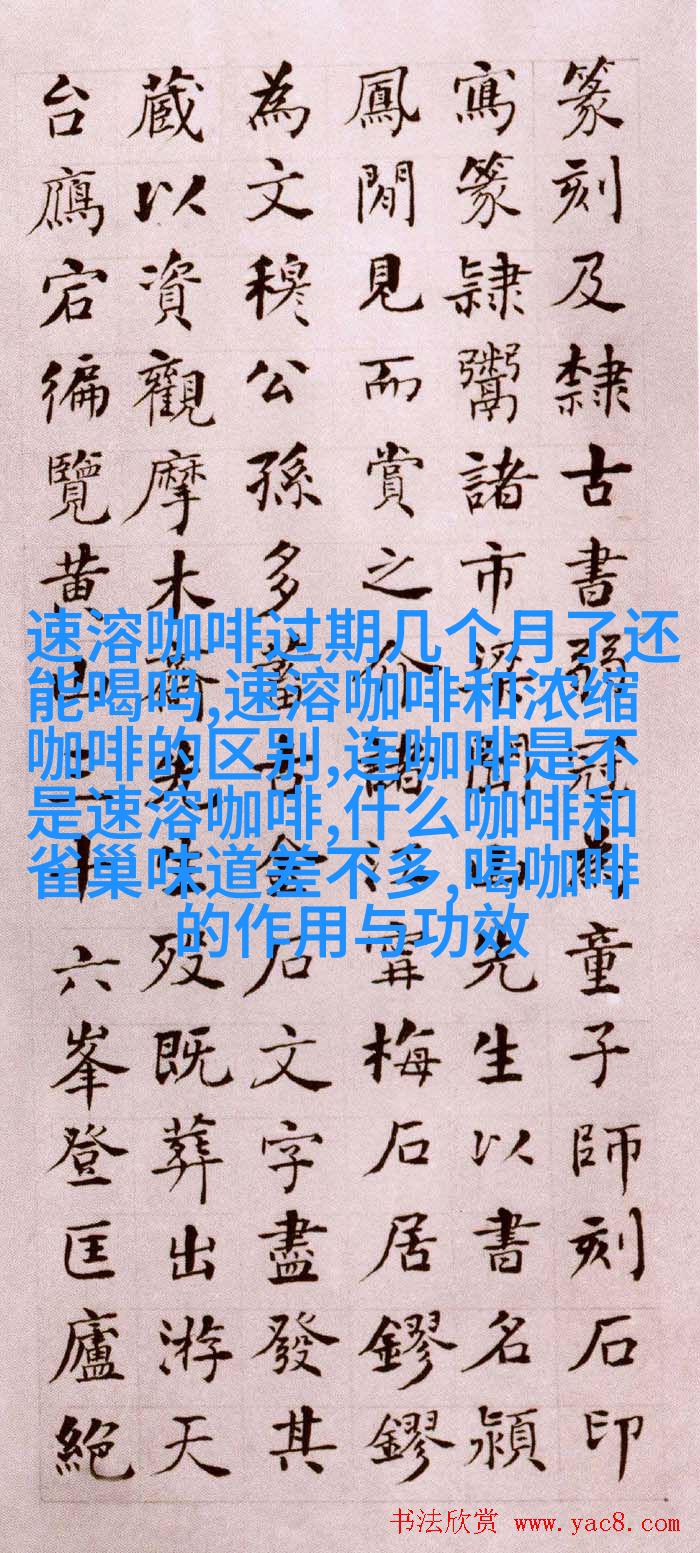 篆刻及隷古書弱冠為童子師刻石印
寫篆隷鬻諸市梁聞山先生以書名潁
鳳閒見而賞之介諸江寧梅石居鏐鏐
為文穆公孫多蓄古金石文字盡發其
蔵以資觀摩木齋先生歿既葬出游天
台鴈宕徧覽黄山三十六峯登匡廬絕
速溶咖啡过期几个月了还
能喝吗,速溶咖啡和浓缩
咖啡的区别,连咖啡是不
是速溶咖啡,什么咖啡和
雀巢味道差不多,喝咖啡
的作用与功效
书法欣赏 www.yac8.com